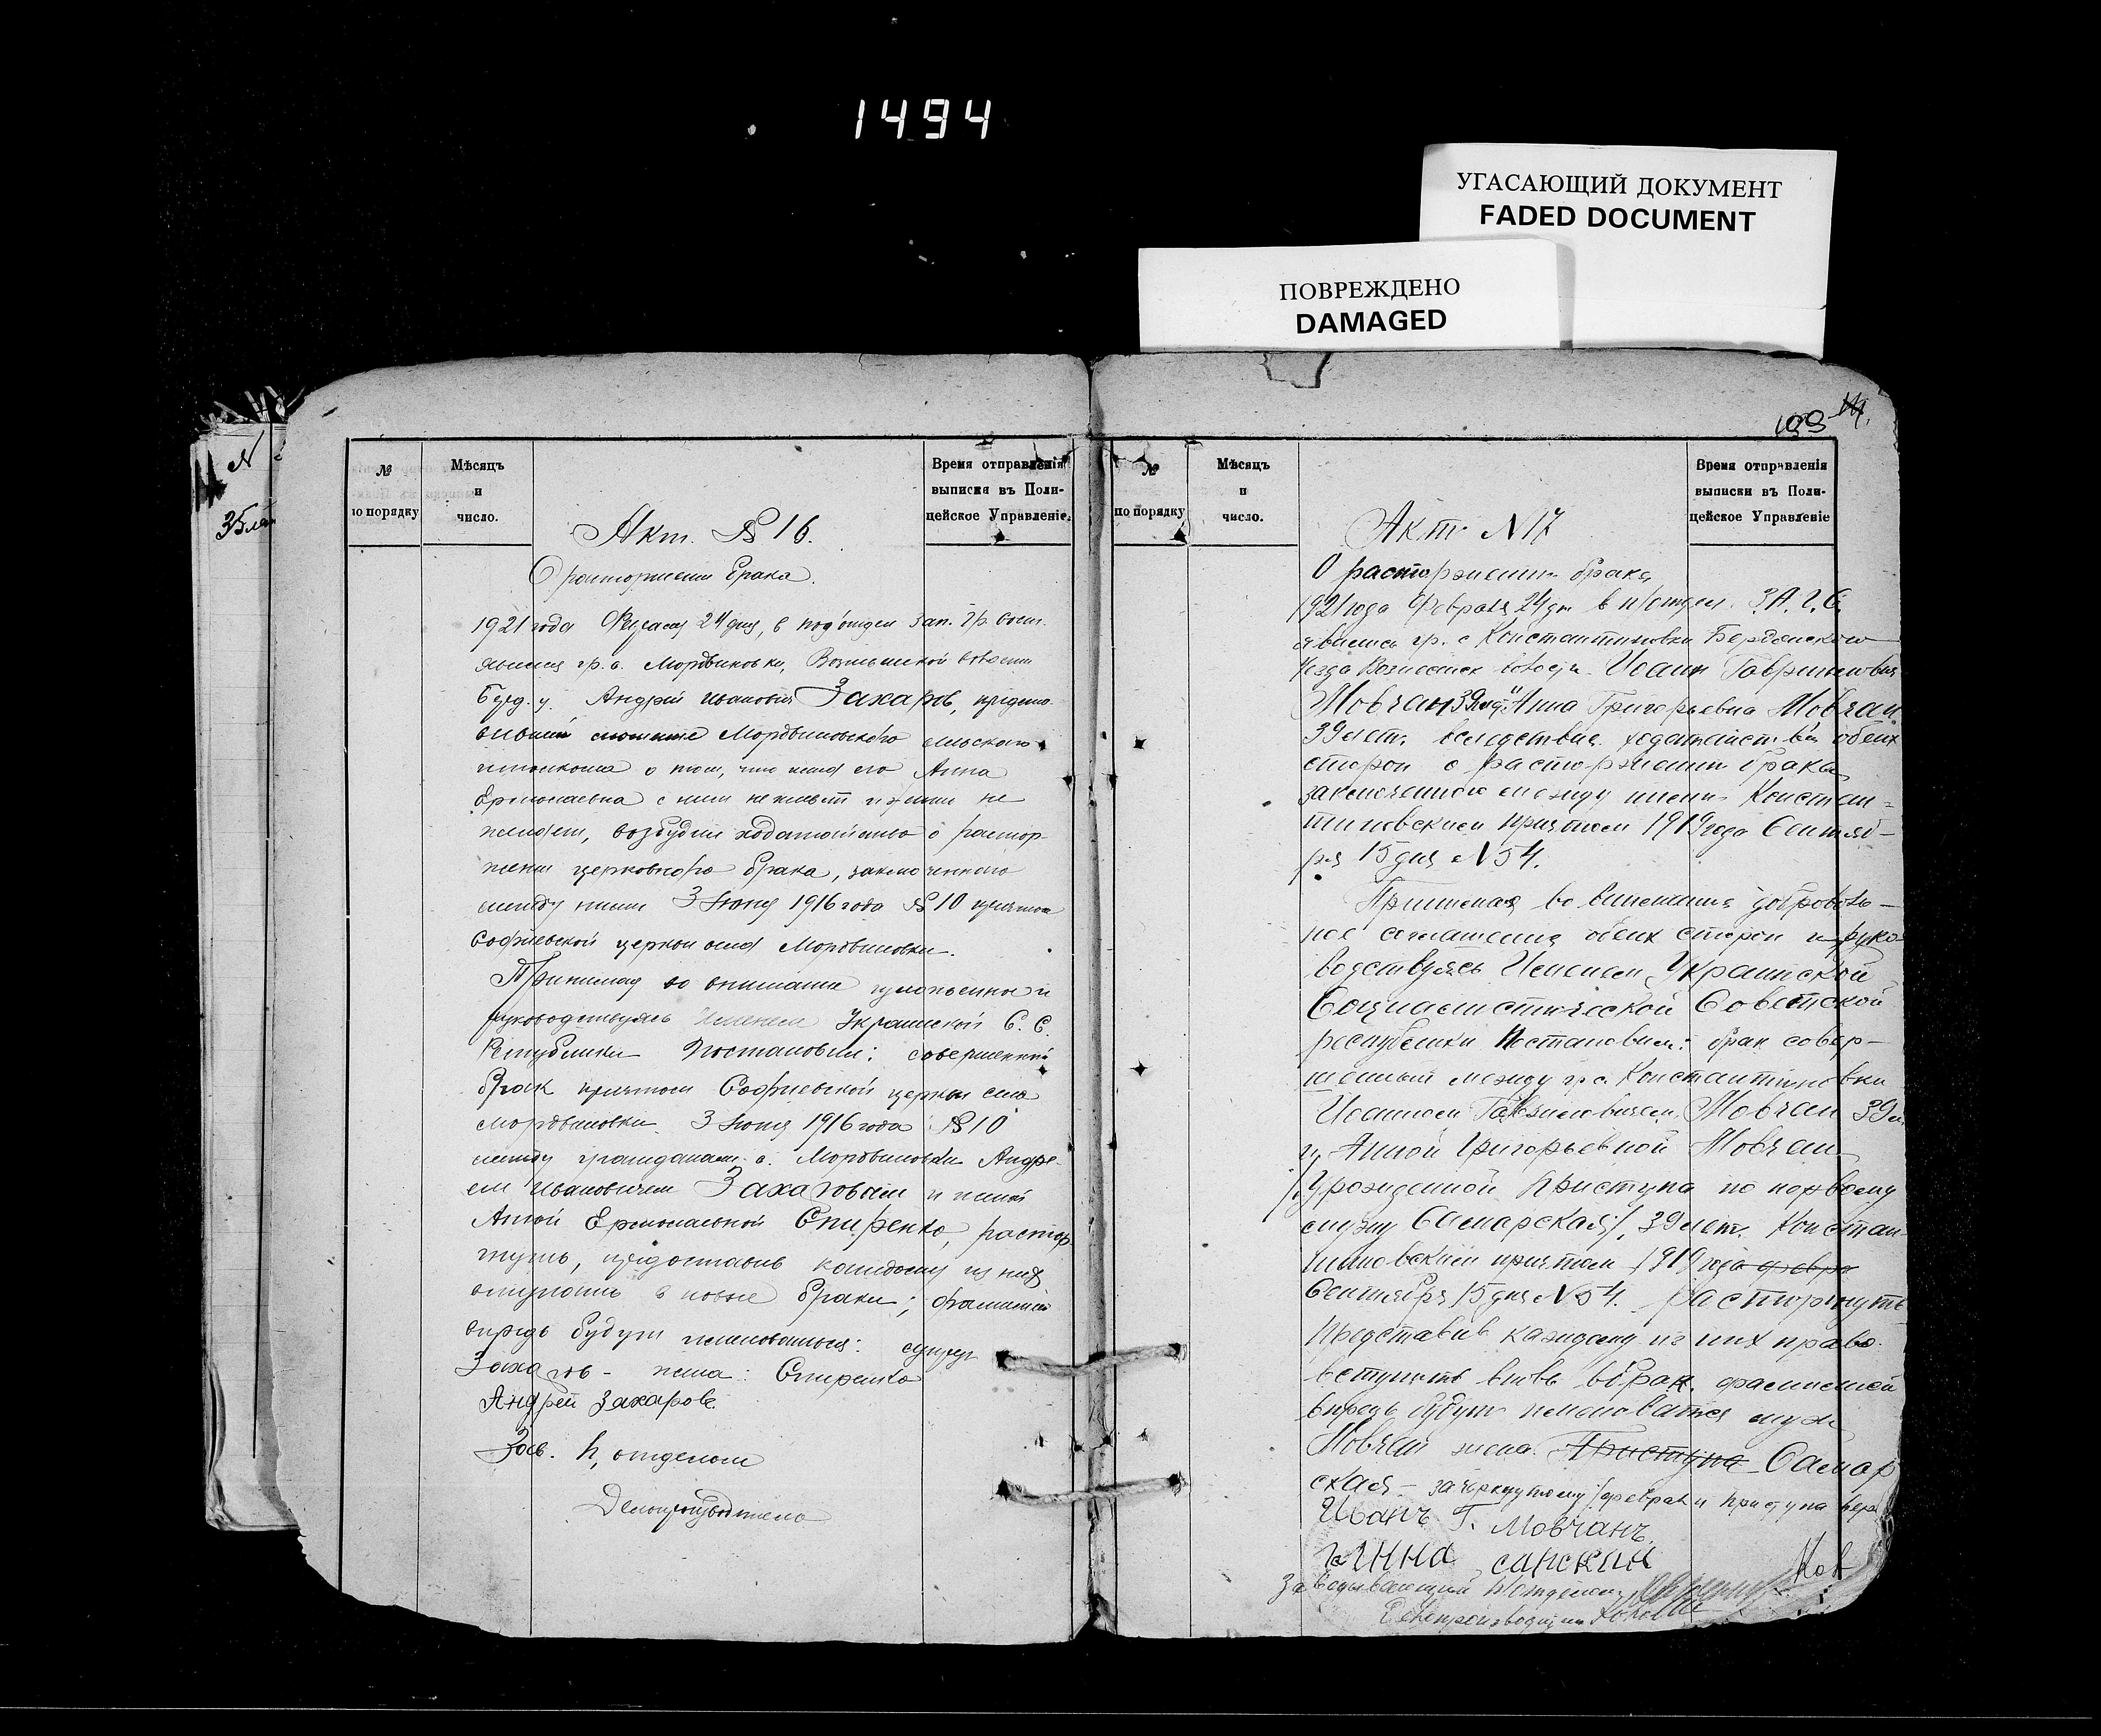 1494
УГАСАЮЩИЙ ДОКУМЕНТ
FADED DOCUMENT
ПОВРЕЖДЕНО
DAMAGED
№
по порядку
Мѣсяцъ
и
число.
Время отправленія
выписки въ Поли-
цейское Управленіе.
Акт № 16.
О расторжении брака.
1921 года Февраля 24 дня, в под'отдел Зап. Гр. Сост.
явился гр. с. Мордвиновки, Вознесенской волости
Берд. у. Андрей Иванович Захаров, предста-
вивший Мордвиновского сельского
исполкома о том, что жена его Анна
Ермолаевна с ним не живет и жить не
желает, возбудил ходатайство о растор-
жении церковного брака, заключенного
между ними 3 Июня 1916 года № 10 причтом
Софиевской церкви села Мордвиновки.
Принимая во внимание изложенное и
руководствуясь Именем Украинской С. С.
Республики Постановил: совершенный
брак причтом Софиевской церкви села
Мордвиновки 3 Июня 1916 года № 10
между гражданами с. Мордвиновки Андре-
ем Ивановичем Захаровым и женой
Анной Ермолаевной Спиренко, растор-
гнуть, предоставив каждому из них
вступать в новые браки; фамилией
впредь будут именоваться: супруг
Захаров - жена: Спиренко
Андрей Захаров.
Зав. п, отделом
Делопроизводитель
199
№
по порядку
Мѣсяцъ
и
число.
Время отправленія
выписки въ Поли-
цейское Управленіе
Акт N 17
О расторжении брака
1921 года Февраля 24 дня в п/отдел З.А.Г.С.
явились гр. с Константиновки Бердянского
Уезда Вознесенск волости Иоанн Гаврилович
Мовчан 39 лет и Анна Григорьевна Мовчан
39 лет, вследствия ходатайства обеих
сторон о расторжении брака
заключенного между ними Констан-
тиновским причтом 1919 года Сентяб-
ря 15 дня N 54.
Принимая во внимания доброволь-
ное соглашения обеих сторон и руко
водствуясь Именем Украинской
Социалистической Советской
республики Постановил: брак совер-
шенный между гр. с. Константиновки
Иоанном Гавриловичем Мовчан 39 л.
и Анной Григорьевной Мовчан
/Урожденной Приступа по первому
мужу Самарская/, 39 лет. Констан-
тиновским причтом 1919 года февра
Сентября 15 дня N 54. расторгнуть
Представив каждому из них право
вступить вновь в брак. фамилией
впредь будут именоватся муж
Мовчан жена. Приступа Самар
ская - зачеркнутому февра и приступа
Иванъ Г. Мовчанъ.
Анна
Заведывающий п/отделом
Делопроизводитель